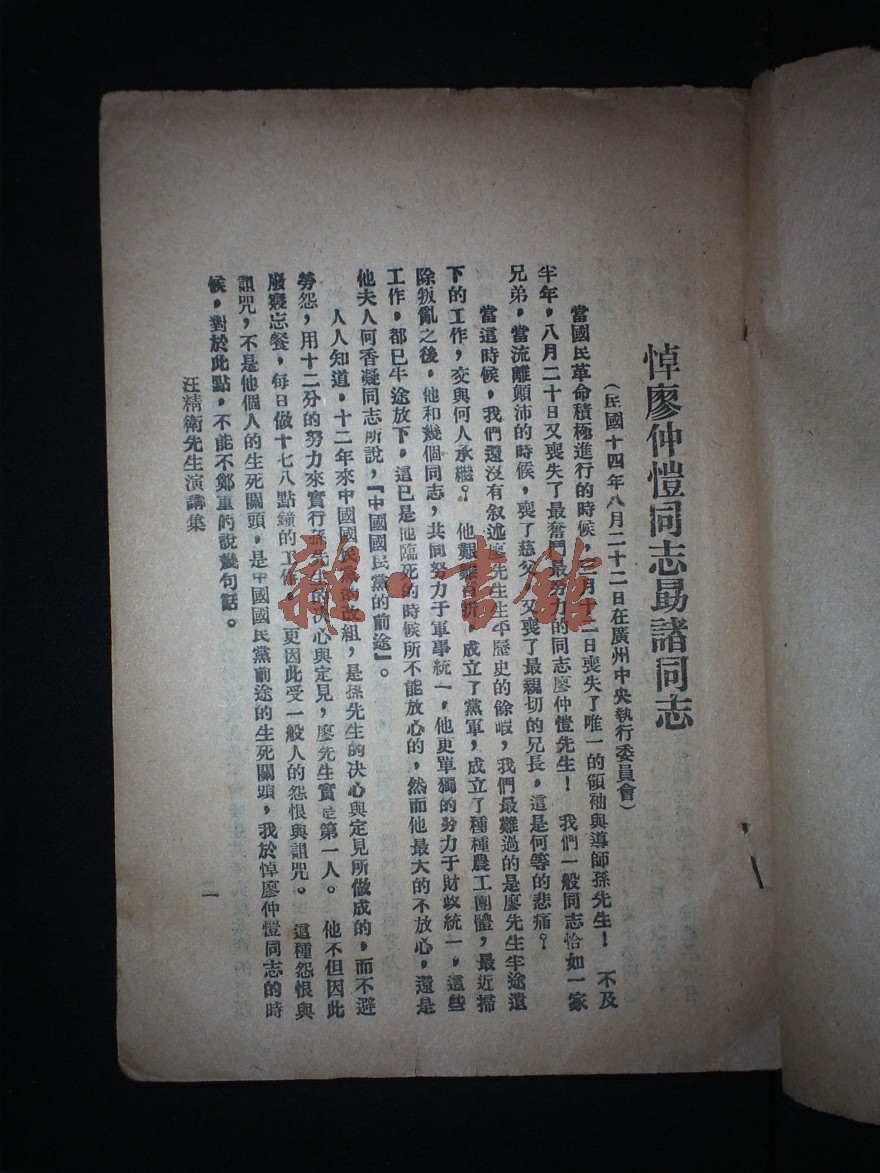 悼廖仲愷同志勗諸同志
（民國十四年八月二十二日在廣州中央執行委員會）
當國民革命積極進行的時候，三月十二日喪失了唯一的領袖與導師孫先生！　不及
半年，八月二十日又喪失了最奮鬥最努力的同志廖仲愷先生！　我們一般同志恰如一家
兄弟，當流離顛沛的時候，喪了慈父，又喪了最親切的兄長，這是何等的悲痛。！
當這時候，我們還沒有叙述廖先生生平歷史的餘暇，我們最難過的是廖先生半途遺
下的工作，交與何人承繼？　他艱難百折，成立了黨軍，成立了種種農工團體，最近掃
除叛亂之後，他和幾個同志，共同努力于軍事統一，他更單獨的努力于財政統一，這些
工作，都已半途放下，這已是他臨死的時候所不能放心的，然而他最大的不放心，還是
他夫人何香凝同志所說，「中國國民黨的前途」。
人人知道，十二年來中國國民黨的改組，是孫先生的決心與定見所做成的，而不避
勞怨，用十二分的努力來實行孫先生的決心與定見，廖先生實是第一人。　他不但因此
廢寢忘餐，每日做十七八點鐘的工作，更因此受一般人的怨恨與詛咒。　這種怨恨與
詛咒，不是他個人的生死關頭，是中國國民黨前途的生死關頭，我於悼廖仲愷同志的時
候，對於此點，不能不鄭重的說幾句話。
汪精衛先生演講集
二
雜·書館